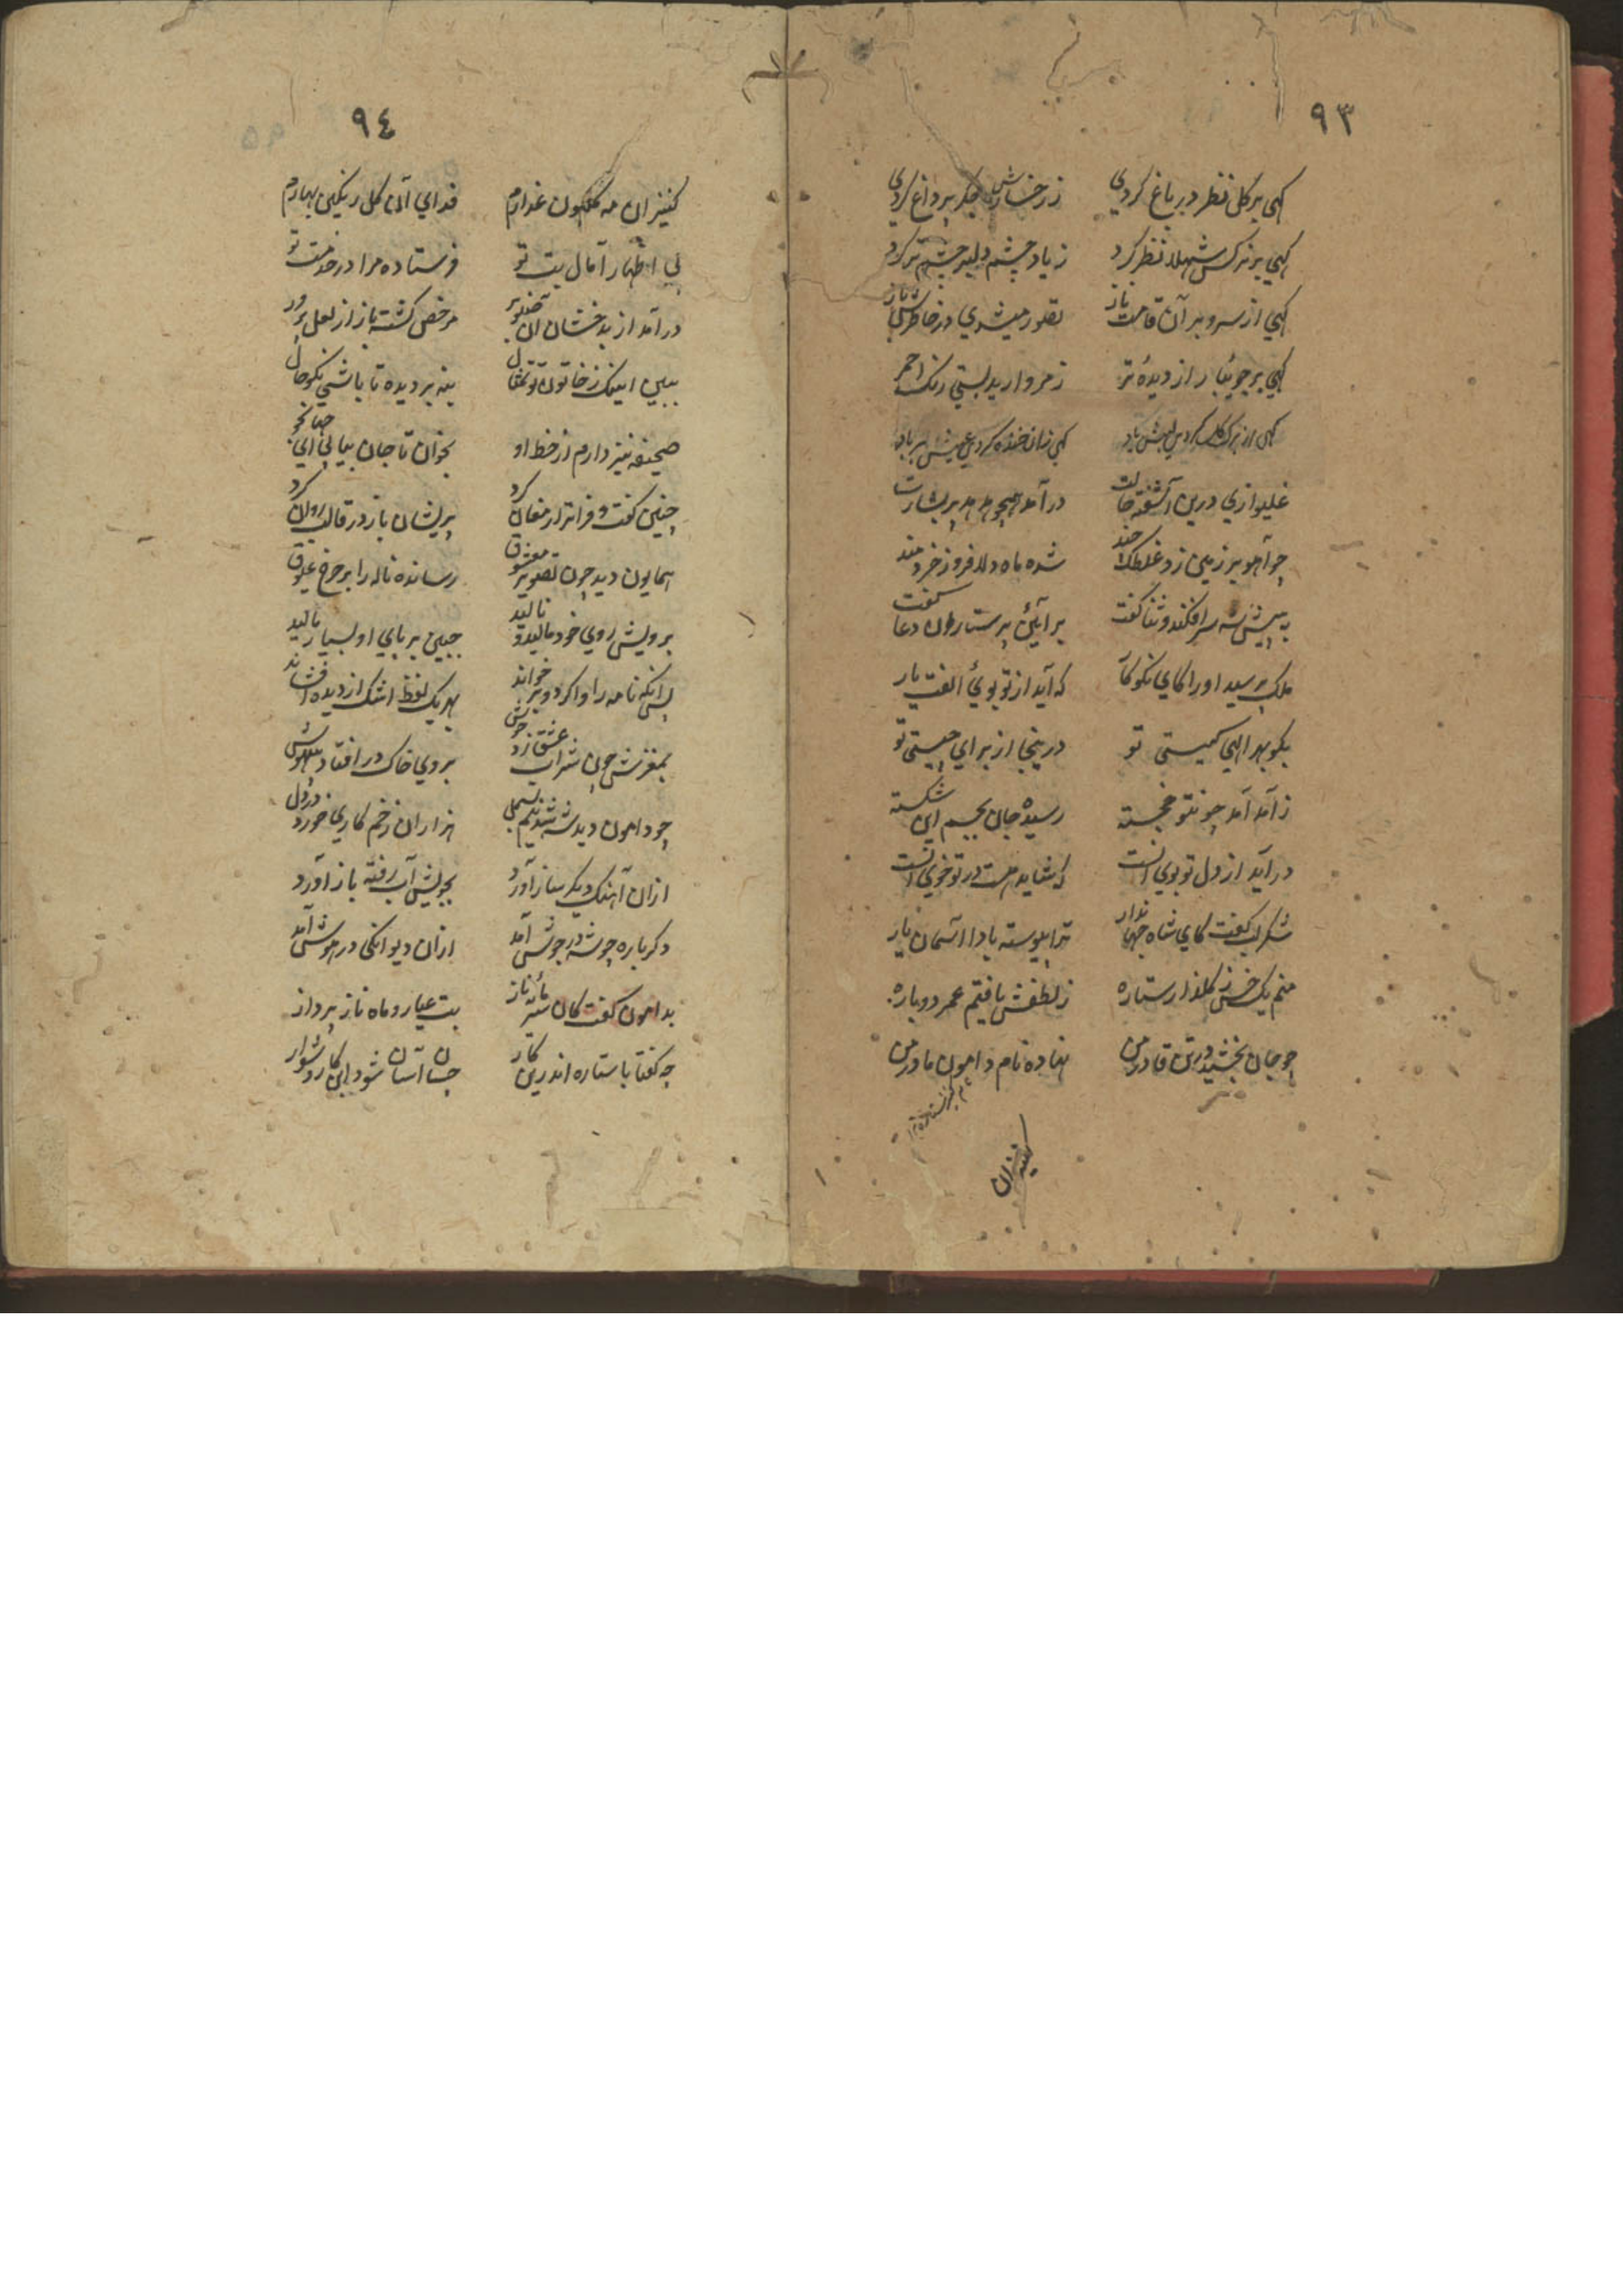 ٩٣
كهى بر كل نظر در باغ كردي
ز رخسارش جكر پر داغ كردي
كهي بر نركس شهلا نظر كرد
ز ياد چشم دلبر چشم تر كرد
كهي از سرو بر آن قامت ناز
تصور ميشدي در خاطرش باز
كهي بر جويبار از ديدهٔ تر
ز مرواريد بستي رنك احمر
كهى از برك كل كردي لبش ياد
كهي زان خنده كردي عيش بر باد
غليوازي درين آشفته حالت
درآمد همچو هدهد پر بشارت
چو آهو بر زمين زد غلطك چند
شده ماه دلافروز خردمند
به پيش شه سر افكند و ثنا كفت
بر آئين پرستاران دعا كفت
ملك پرسيد او را كاي نكوكار
كه آيد از تو بوئ الفت يار
بكو بهر الهي كيستي تو
درينجا از براي چيستي تو
ز آمد آمد چونتو خجسته
رسيده جان بجسم اين شكسته
در آيد از دل تو بوي انست
كه شايد هست در تو خوي انست
شكر لب كفت كاي شاه جهاندار
ترا پيوسته بادا آسمان يار
منم يك خس ز كلذار ستاره
ز لطفش يافتم عمر دوباره
چو جان بخشيد در تن قادر من
نهاده نام دامون مادر من
كنيزان
٩٤
كنيز ان مه كلكون عذارم
فداي آن كل رنكين بهارم
پي اظهار آمال بت تو
فرستاده مرا در خدمت تو
در آمد از بدخشان اين
مرخص كشته باز از لعل پرور
ببين اينك ز خاتون تو تمثال
بنه بر ديده تا باشي نكو حال
صحيفه نيز دارم از خط او
بخوان تا جان بيابي اي جهانجو
چنين كفت و فراتر ارمغان كرد
پريشان باز در قالب روان كرد
همايون ديد چون تصوير معشوق
رسانده ناله را بر چرخ عيوق
برويش روي خود ماليد و ناليد
جبين بر پاي او بسيار ماليد
پس آنكه نامه را وا كرد و بر خواند
بهر يك لفظ اشك از ديده افشاند
بمغزش چون شراب عشق زد جوش
بروي خاك در افتاد بيهوش
چو دامون ديد شه شد نيم بسمل
هزاران زخم كاري خورد در دل
ازان آهنك ديكر ساز آورد
بجويش آب رفته باز آورد
دكر باره چو شه در جوش آمد
ازان ديوانكي در هوش آمد
بدامون كفت كان سرمايهٔ ناز
بت عيار و ماه ناز پرداز
چه كفتا با ستاره اندرين كار
چسان آسان شود اين كار دشوار